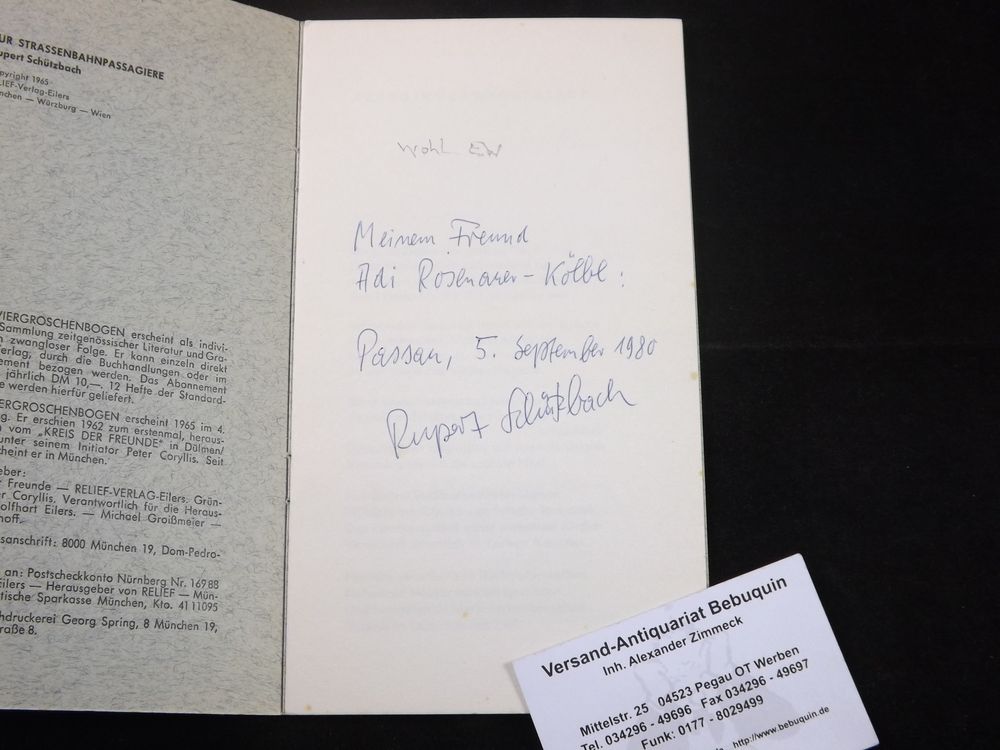 UR STRASSENBAHNPASSAGIERE
upert Schützbach
pyright 1965
LIEF-Verlag-Eilers
nchen — Würzburg — Wien
VIERGROSCHENBOGEN erscheint als indivi-
Sammlung zeitgenössischer Literatur und Gra-
n zwangloser Folge. Er kann einzeln direkt
erlag, durch die Buchhandlungen oder im
ement bezogen werden. Das Abonnement
jährlich DM 10,—. 12 Hefte der Standard-
e werden hierfür geliefert.
ERGROSCHENBOGEN erscheint 1965 im 4.
g. Er erschien 1962 zum erstenmal, heraus-
n vom „KREIS DER FREUNDE" in Dülmen/
unter seinem Initiator Peter Coryllis. Seit
cheint er in München.
eber:
r Freunde — RELIEF-VERLAG-Eilers. Grün-
er Coryllis. Verantwortlich für die Heraus-
olfhart Eilers. — Michael Groißmeier —
hoff.
sanschrift: 8000 München 19, Dom-Pedro-
an: Postscheckkonto Nürnberg Nr. 169 88
Eilers — Herausgeber von RELIEF — Mün-
tische Sparkasse München, Kto. 41 11095
hdruckerei Georg Spring, 8 München 19,
raße 8.
Wohl EW
Meinem Freund
Adi Rosenauer-Kölbl:
Passau, 5. September 1980
Rupert Schützbach
Versand-Antiquariat Bebuquin
Inh. Alexander Zimmeck
Mittelstr. 25 04523 Pegau OT Werben
Tel. 034296 - 49696 Fax 034296 - 49697
Funk: 0177 - 8029499
http://www.bebuquin.de